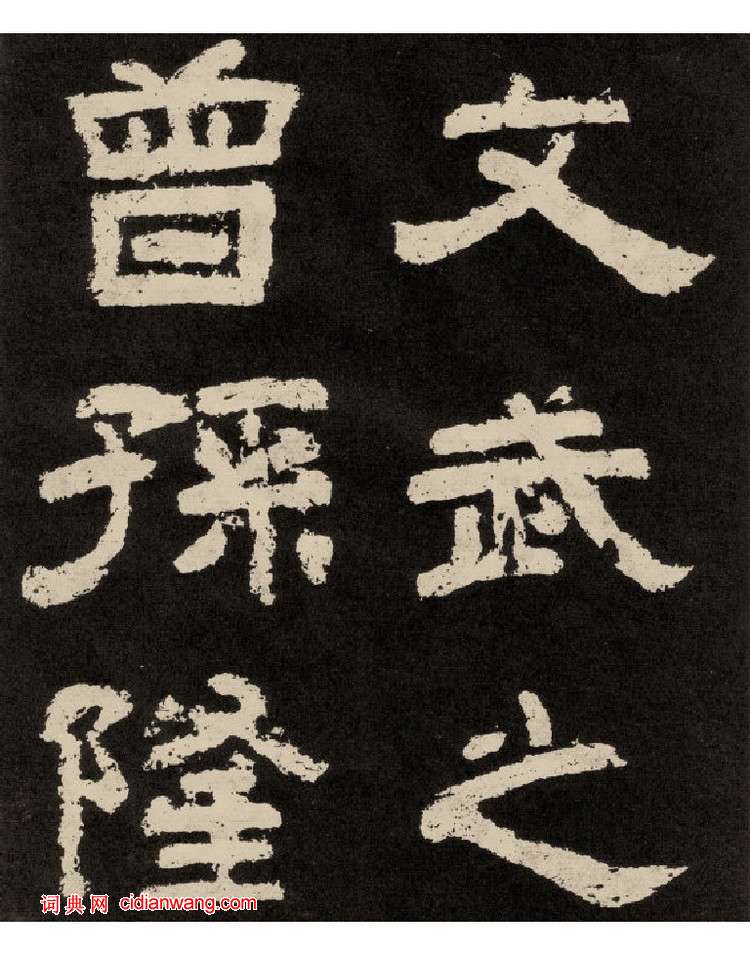 文武之
曾孫隆
词典网 cidianwang.com